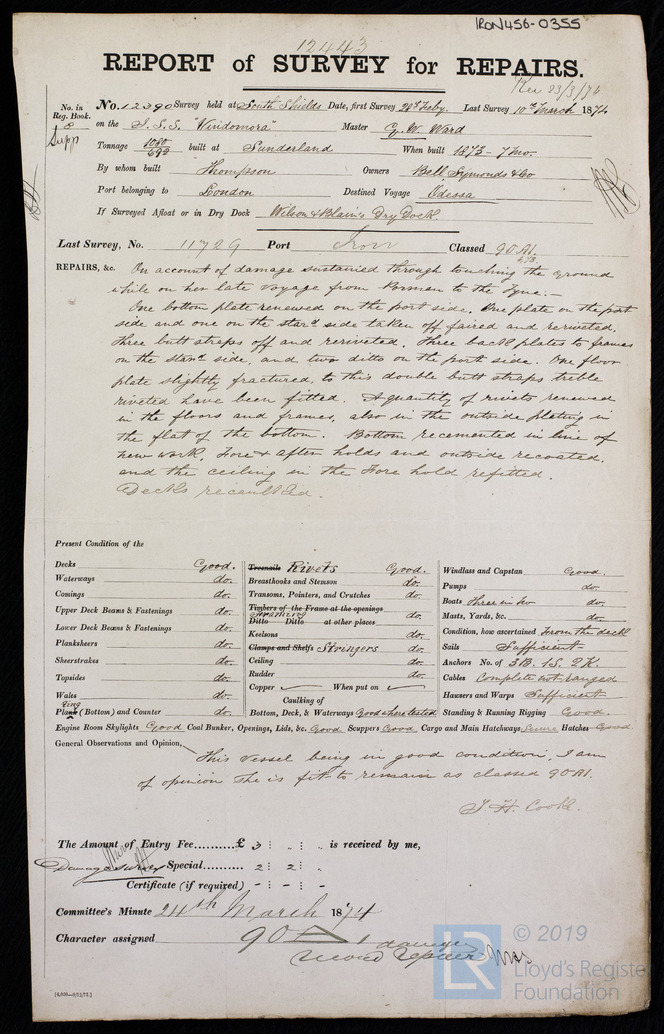 IRON456-0355
12443
REPORT of SURVEY for REPAIRS.
Rec 23/3/74
No. in Reg. Book. 8 Supp
No. 12390 Survey held at South Shields Date, first Survey 28th Feby. Last Survey 10th March 1874
on the S.S.S. "Vindomora" Master G. W. Ward
Tonnage 1060/692 built at Sunderland When built 1873 - 7mo.
By whom built Thompson Owners Bell, Symonds & Co
Port belonging to London Destined Voyage Odessa
If Surveyed Afloat or in Dry Dock Wilson & Blain's Dry Dock.
Last Survey, No. 11729 Port Iron Classed 90 A1.
6,73.
REPAIRS, &c. On account of damage sustained through touching the ground
while on her late voyage from Bremen to the Tyne.—
One bottom plate renewed on the port side. One plate on the port
side and one on the stard side taken off faired and reriveted.
Three butt straps off and reriveted. Three back plates to frames
on the stard side, and two ditto on the port side. One floor
plate slightly fractured, to this double butt straps treble
riveted have been fitted. A quantity of rivets renewed
in the floors and frames, also in the outside plating in
the flat of the bottom. Bottom recemented in line of
new work. Fore & after holds and outside recoated,
and the ceiling in the Fore hold refitted.
Decks recaulked.
Present Condition of the
Decks Good.
Waterways do.
Comings do.
Upper Deck Beams & Fastenings do.
Lower Deck Beams & Fastenings do.
Planksheers do.
Sheerstrakes do.
Topsides do.
Wales do.
Plating (Bottom) and Counter do.
Treenails Rivets Good.
Breasthooks and Stemson do.
Transoms, Pointers, and Crutches do.
Timbers of the Frame at the openings
Framing
Ditto Ditto at other places do.
Keelsons do.
Clamps and Shelfs Stringers do.
Ceiling do.
Rudder do.
Copper ✓ When put on ✓
Caulking of
Bottom, Deck, & Waterways Good where tested
Windlass and Capstan Good.
Pumps do.
Boats Three in No do.
Masts, Yards, &c. do.
Condition, how ascertained From the deck
Sails Sufficient
Anchors No. of 3B. 1S. 2K.
Cables Complete not ranged
Hawsers and Warps Sufficient
Standing & Running Rigging Good.
Engine Room Skylights Good Coal Bunker, Openings, Lids, &c. Good Scuppers Good Cargo and Main Hatchways Secure Hatches Good
General Observations and Opinion,
This vessel being in good condition, I am
of opinion she is fit to remain as classed 90A1.
J. H. Cooke.
The Amount of Entry Fee.......... £ 3 : „ : „ is received by me,
Damage survey Special.......... 2 : 2 : „
Certificate (if required) - : - : -
Committee's Minute 24th March 1874
Character assigned 90 A 1 damage
record repairs
[4,000—9/12/72.]
LR
© 2019
Lloyd's Register
Foundation